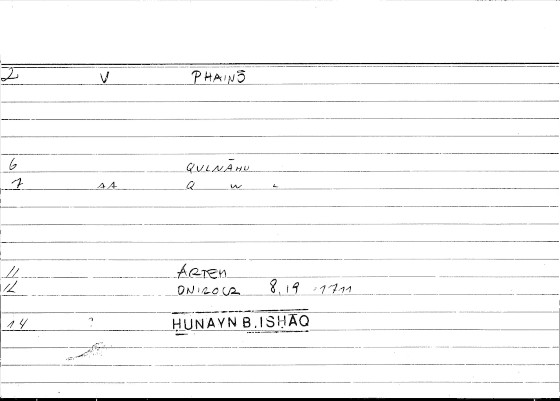 2 V PHAINŌ
6 QULNĀHU
7 AA Q W L
11 ARTEM
12 ONIROCR 8,19 -1711
14 ? HUNAYN B. ISHĀQ